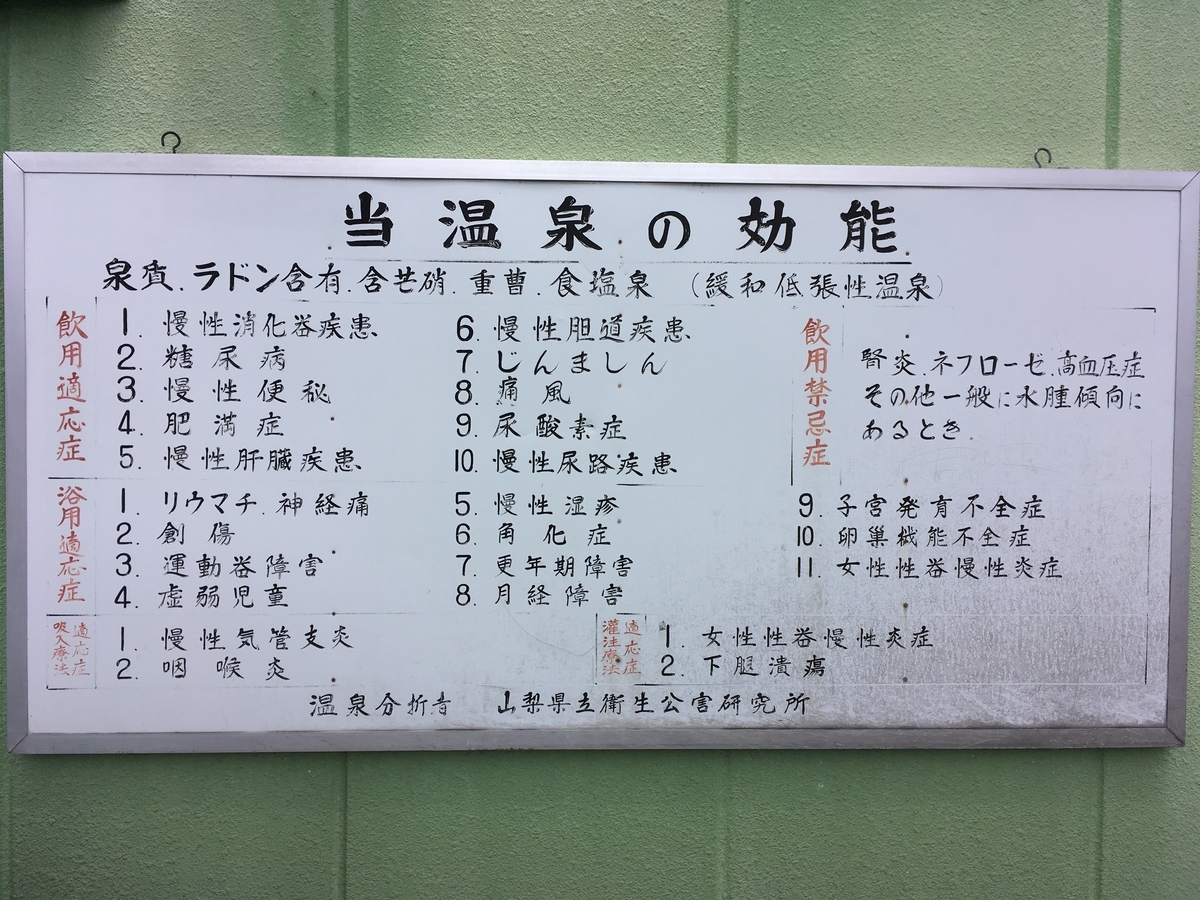 当温泉の効能
泉質.ラドン含有.含芒硝.重曹.食塩泉 (緩和低張性温泉)
飲用適応症
1. 慢性消化器疾患
2. 糖尿病
3. 慢性便秘
4. 肥満症
5. 慢性肝臓疾患
6. 慢性胆道疾患
7. じんましん
8. 痛風
9. 尿酸素症
10. 慢性尿路疾患
飲用禁忌症
腎炎.ネフローゼ.高血圧症
その他一般に水腫傾向に
あるとき.
浴用適応症
1. リウマチ.神経痛
2. 創傷
3. 運動器障害
4. 虚弱児童
5. 慢性湿疹
6. 角化症
7. 更年期障害
8. 月経障害
9. 子宮発育不全症
10. 卵巣機能不全症
11. 女性性器慢性炎症
吸入療法
適応症
1. 慢性気管支炎
2. 咽喉炎
灌注療法
適応症
1. 女性性器慢性炎症
2. 下腿潰瘍
温泉分折者 山梨県立衛生公害研究所